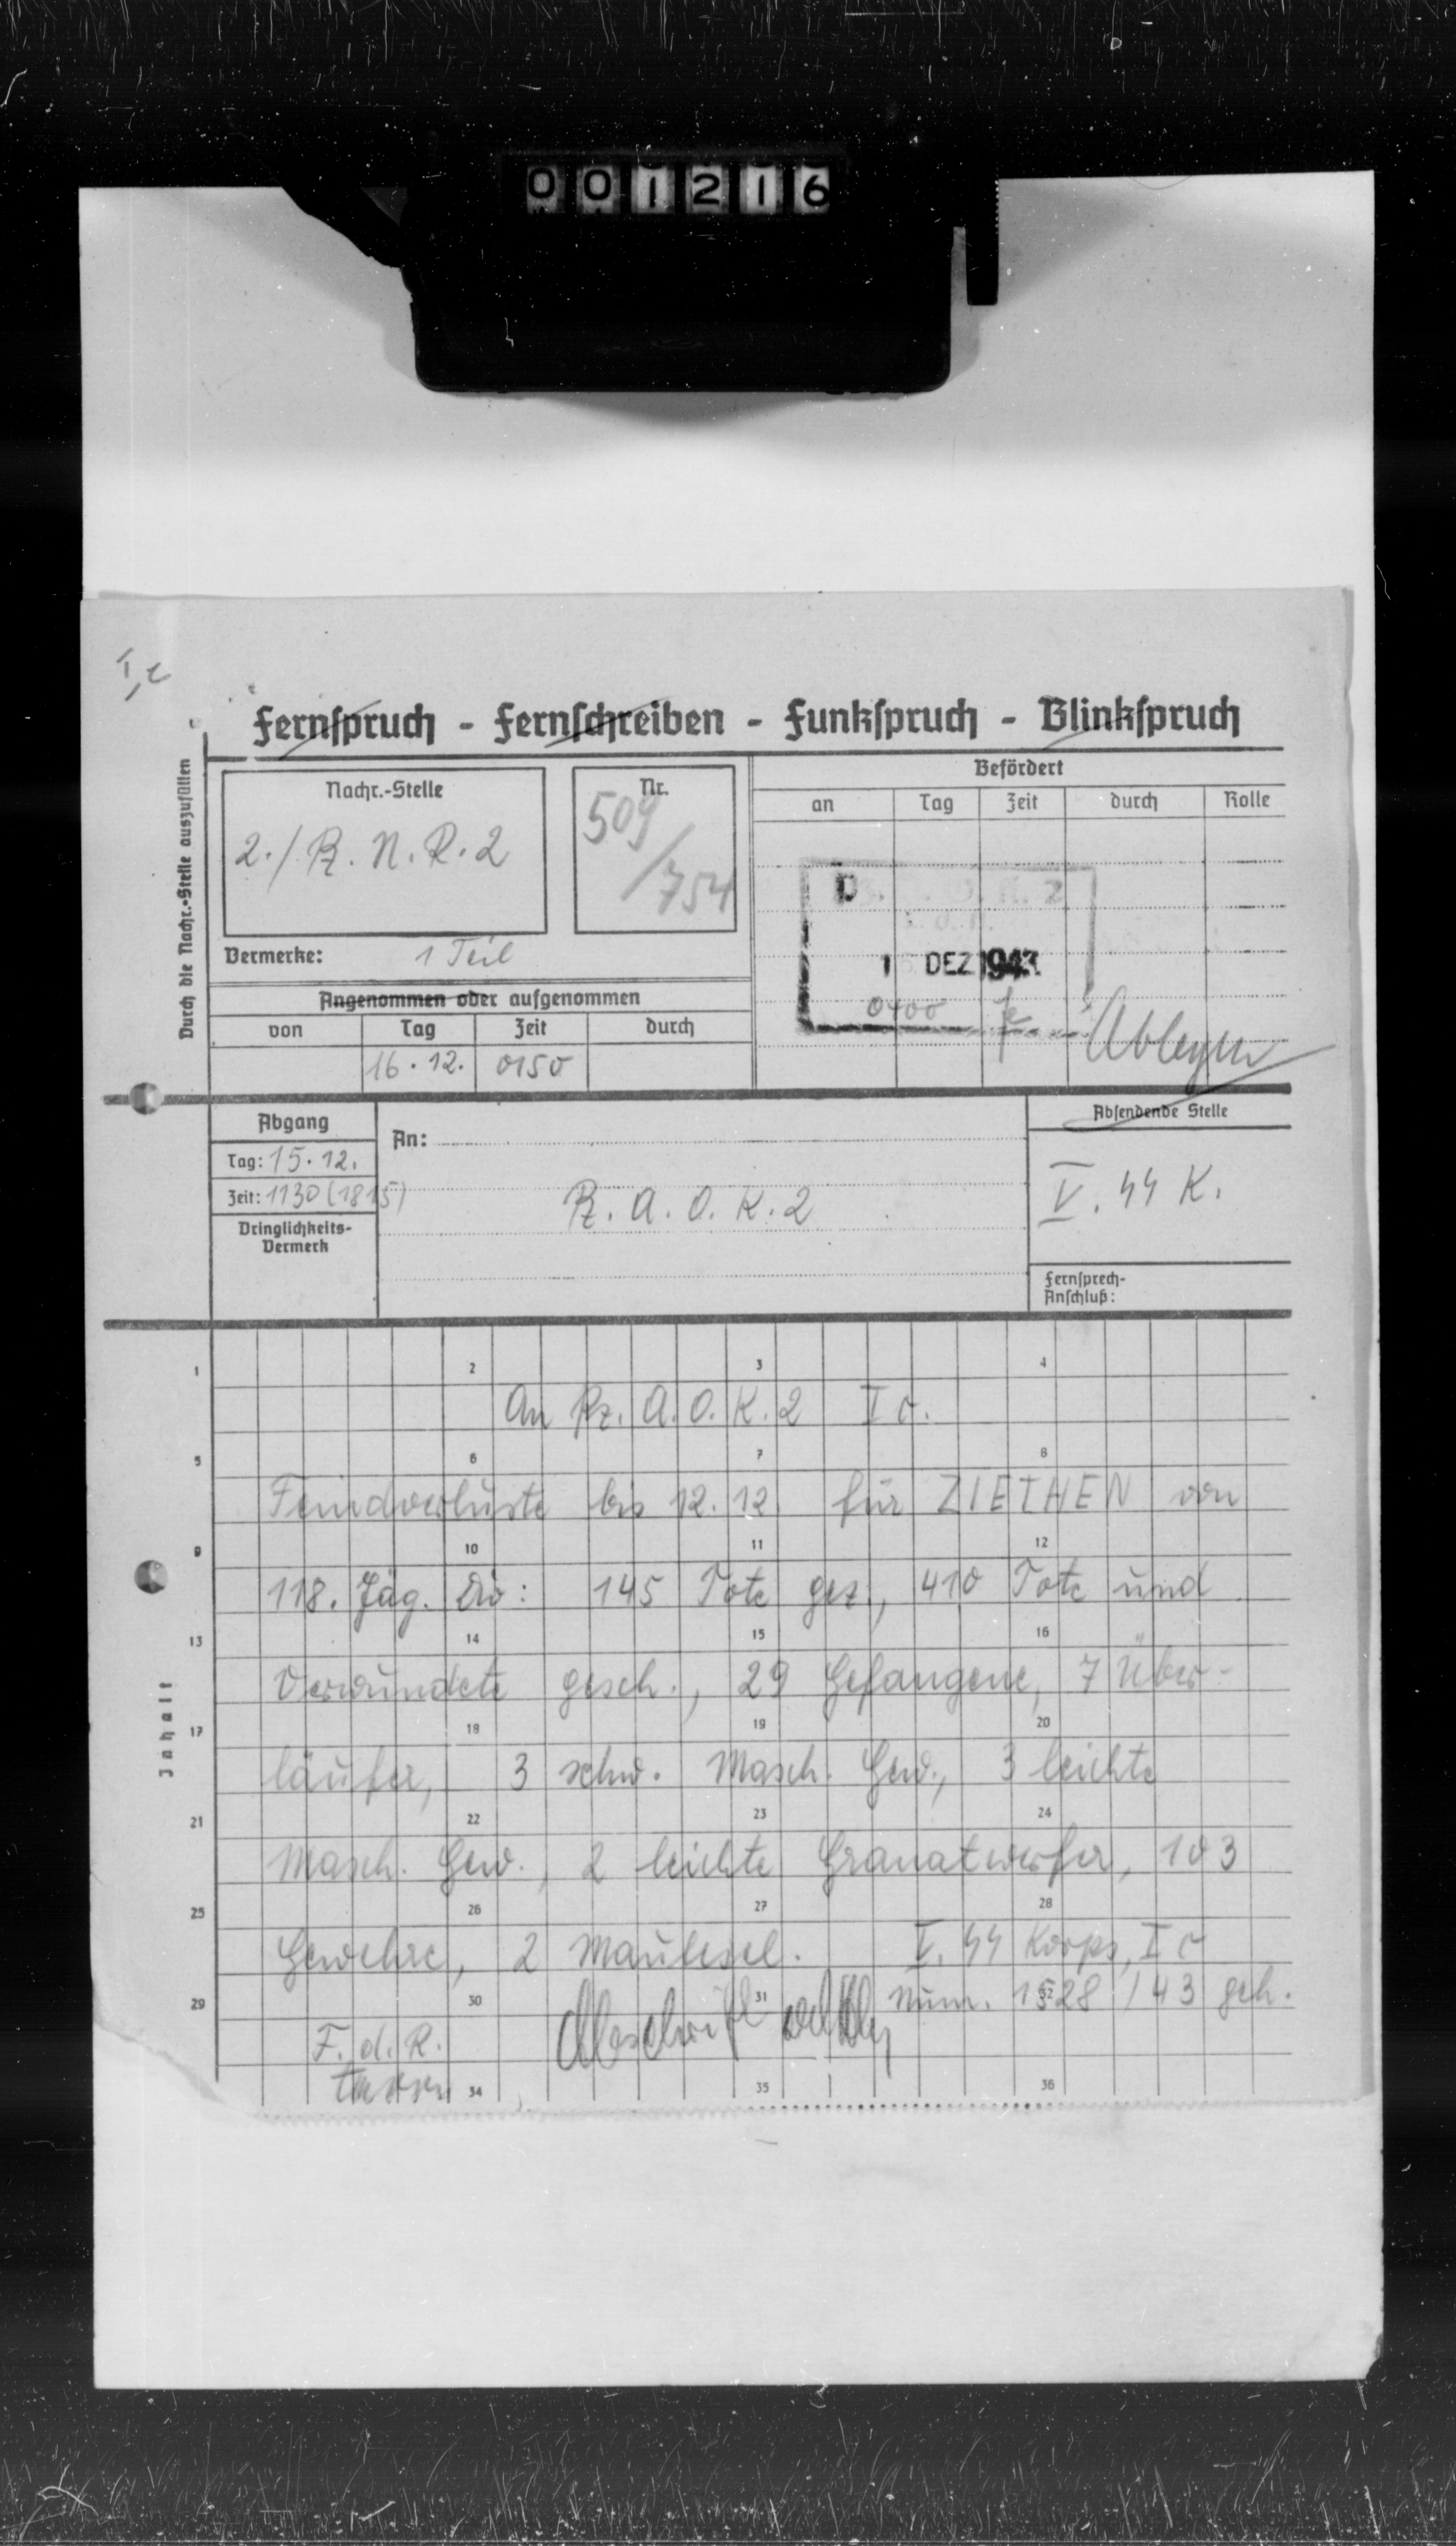 001216
I c
Fernspruch - Fernschreiben - Funkspruch - Blinkspruch
Durch die Nachr.-Stelle auszufüllen
Nachr.-Stelle
2./Pz. N. R. 2
Nr.
509/754
Befördert
an Tag Zeit durch Rolle
Vermerke: 1 Teil
DEZ 1943
0400
Ablegen
Angenommen oder aufgenommen
von Tag Zeit durch
16. 12. 0150
Abgang
Tag: 15. 12.
Zeit: 1130 (1815)
Dringlichkeits-
Vermerk
An:
Pz. A. O. K. 2
Absendende Stelle
V. SS K.
Fernsprech-
Anschluß:
Inhalt
1 2 3 4
An Pz. A. O. K. 2 Ic.
5 6 7 8
Feindverluste bis 12. 12. für ZIETHEN von
9 10 11 12
118. Jäg. Div: 145 Tote gez., 410 Tote und
13 14 15 16
Verwundete gesch., 29 Gefangene, 7 Über-
17 18 19 20
läufer, 3 schw. Masch. Gew., 3 leichte
21 22 23 24
Masch. Gew., 2 leichte Granatwerfer, 103
25 26 27 28
Gewehre, 2 Maulesel. V. SS Korps, Ic
29 30 31 32
Num. 1528/43 geh.
F. d. R. Abschrift
34 35 36